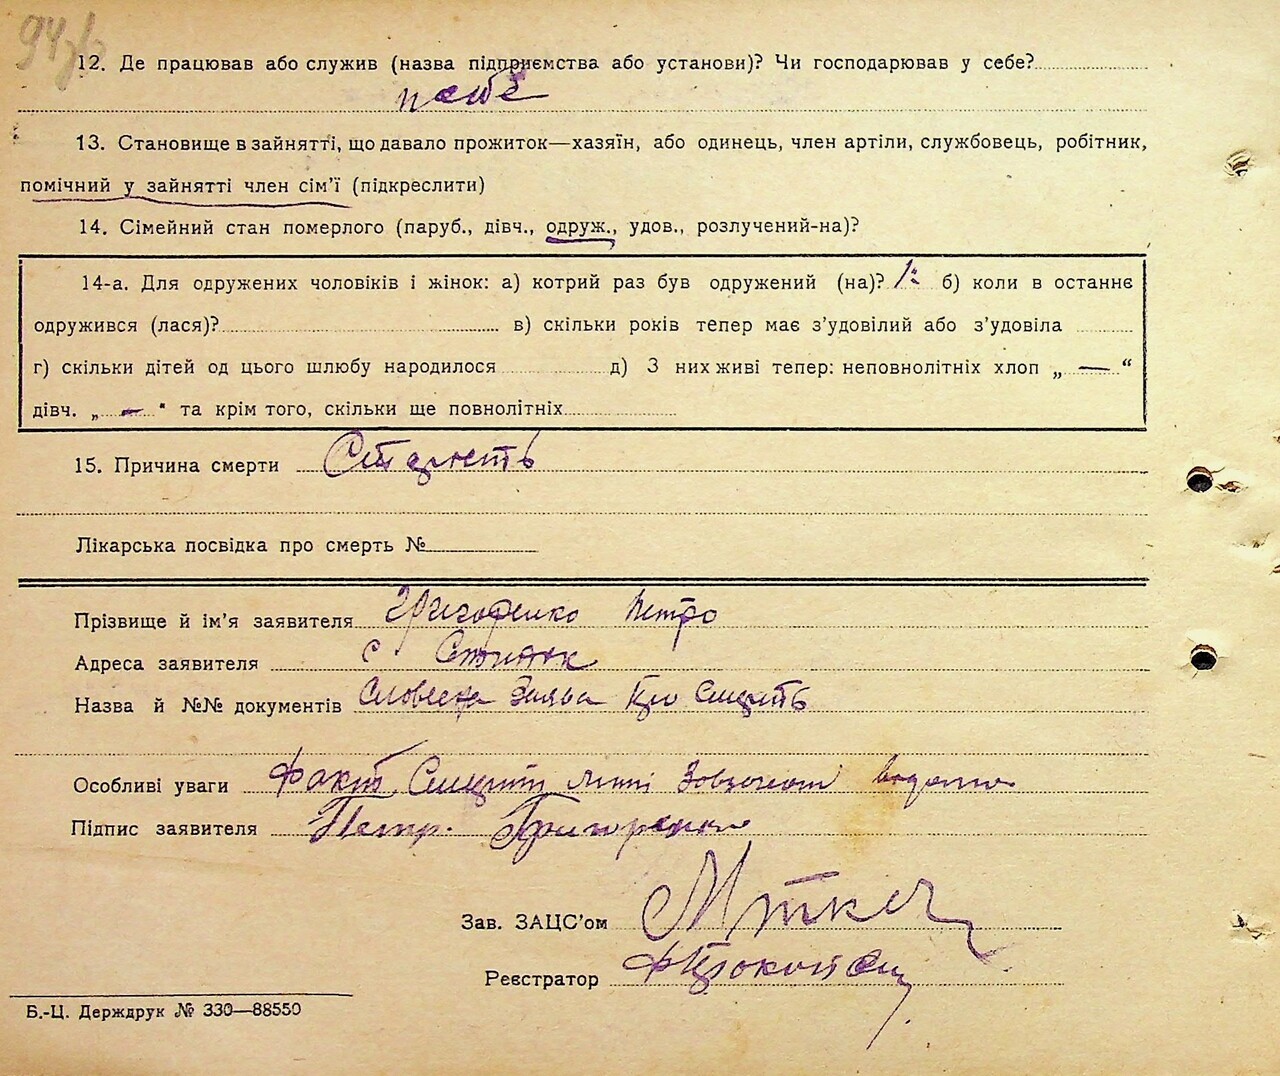 12. Де працював або служив (назва підприємства або установи)? Чи господарював у себе?
13. Становище в зайнятті, що давало прожиток—хазяїн, або одинець, член артіли, службовець, робітник,
помічний у зайнятті член сім'ї (підкреслити)
14. Сімейний стан померлого (паруб., дівч., одруж., удов., розлучений-на)?
14-а. Для одружених чоловіків і жінок: а) котрий раз був одружений (на)? 1 б) коли в останнє
одружився (лася)? в) скільки років тепер має з'удовілий або з'удовіла
г) скільки дітей од цього шлюбу народилося д) З них живі тепер: неповнолітніх хлоп „ — “
дівч. „ — “ та крім того, скільки ще повнолітніх
15. Причина смерти Старість
Лікарська посвідка про смерть №
Прізвище й ім'я заявителя Григоренко Петро
Адреса заявителя с
Назва й №№ документів Словесна Заява про смерть
Особливі уваги Факт Смерти мені
Підпис заявителя Петр. Григоренко
Зав. ЗАЦС'ом
Реєстратор
Б.-Ц. Держдрук № 330—88550